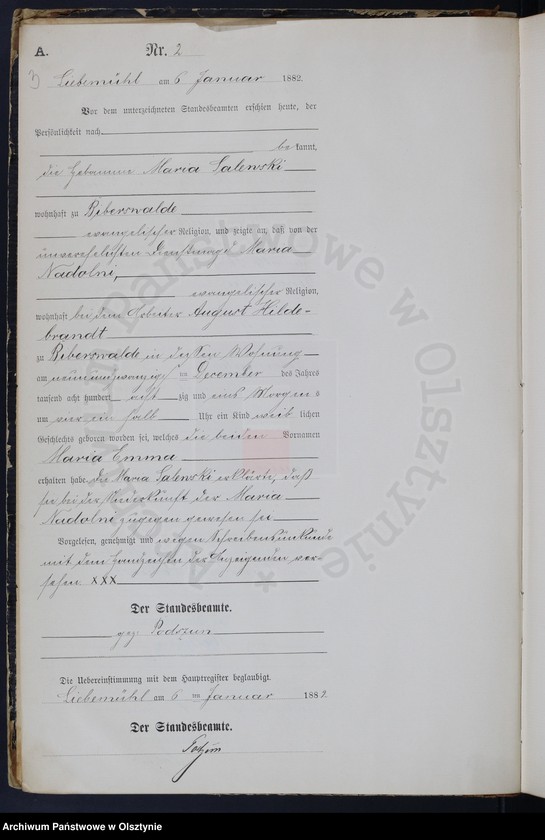 A. Nr. 2
3
Liebemühl am 6 Januar 1882.
Vor dem unterzeichneten Standesbeamten erschien heute, der
Persönlichkeit nach
be kannt,
die Hebamme Maria Salewski
wohnhaft zu Biberswalde
evangelischer Religion, und zeigte an, daß von der
unverehelichten Dienstmagd Maria
Nadolni,
evangelischer Religion,
wohnhaft bei dem Arbeiter August Hilde-
brandt
zu Biberswalde in dessen Wohnung
am neunundzwanzigsten December des Jahres
tausend acht hundert acht zig und eins Morgens
um vier ein halb Uhr ein Kind weib lichen
Geschlechts geboren worden sei, welches die beiden Vornamen
Maria Emma
erhalten habe. die Maria Salewski erklärte, daß
sie bei der Niederkunft der Maria
Nadolni zugegen gewesen sei
Vorgelesen, genehmigt und wegen Schreibensunkunde
mit dem Handzeichen der Anzeigenden ver-
sehen. XXX
Der Standesbeamte.
gez. Podszun
Die Uebereinstimmung mit dem Hauptregister beglaubigt.
Liebemühl am 6 ten Januar 1882.
Der Standesbeamte.
Archiwum Państwowe w Olsztynie
* Archiwum Państwowe w Olsztynie